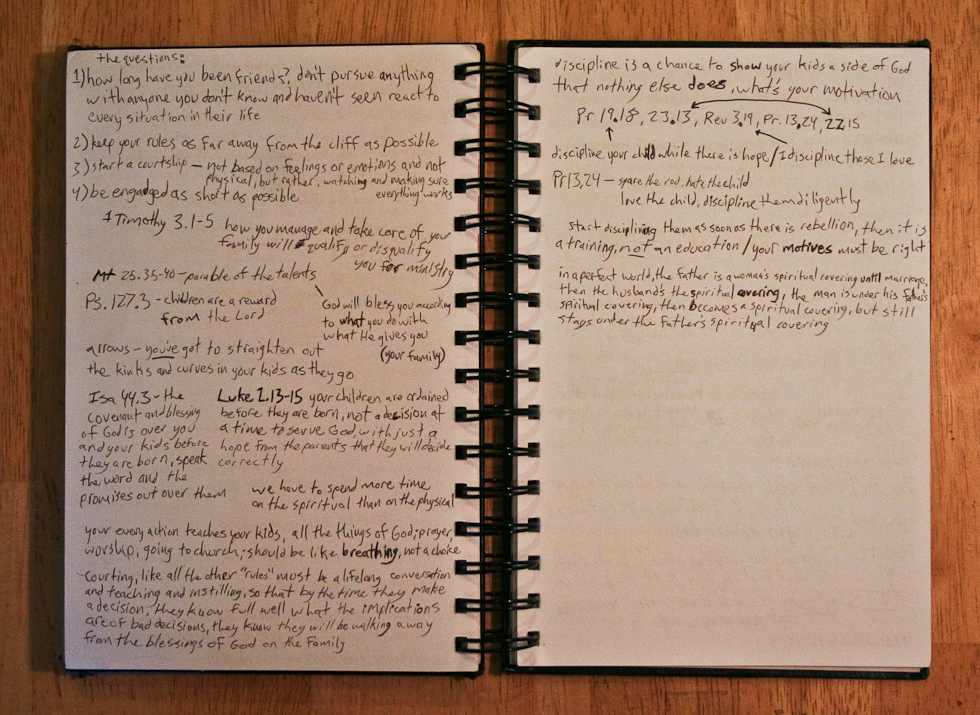 the questions:
1) how long have you been friends?, don't pursue anything
with anyone you don't know and haven't seen react to
every situation in their life
2) keep your rules as far away from the cliff as possible
3) start a courtship – not based on feelings or emotions and not
physical, but rather, watching and making sure
everything works
4) be engaged as short as possible
1 Timothy 3.1-5 how you manage and take care of your
family will qualify or disqualify
you for ministry
Mt 25.35-40 – parable of the talents
God will bless you according
to what you do with
what He gives you
(your family)
Ps. 127.3 – children are a reward
from the Lord
arrows – you've got to straighten out
the kinks and curves in your kids as they go
Isa 44.3 – the
covenant and blessing
of God is over you
and your kids before
they are born, speak
the word and the
promises out over them
Luke 1.13-15 your children are ordained
before they are born, not a decision at
a time to serve God, with just a
hope from the parents that they will decide
correctly
we have to spend more time
on the spiritual than on the physical
your every action teaches your kids, all the things of God; prayer,
worship, going to church; should be like breathing, not a choice
Courting, like all the other "rules" must be a lifelong conversation
and teaching and instilling, so that by the time they make
a decision, they know full well what the implications
are of bad decisions, they know they will be walking away
from the blessings of God on the Family
discipline is a chance to show your kids a side of God
that nothing else does, what's your motivation
Pr 19.18, 23.13, Rev 3.19, Pr. 13.24, 22.15
discipline your child while there is hope / I discipline those I love
Pr 13.24 – spare the rod, hate the child
love the child, discipline them diligently
start disciplining them as soon as there is rebellion, then it is
a training, not an education / your motives must be right
in a perfect world, the Father is a woman's spiritual covering until marriage,
then the husband's the spiritual covering, the man is under his father's
spiritual covering, then becomes a spiritual covering, but still
stays under the Father's spiritual covering